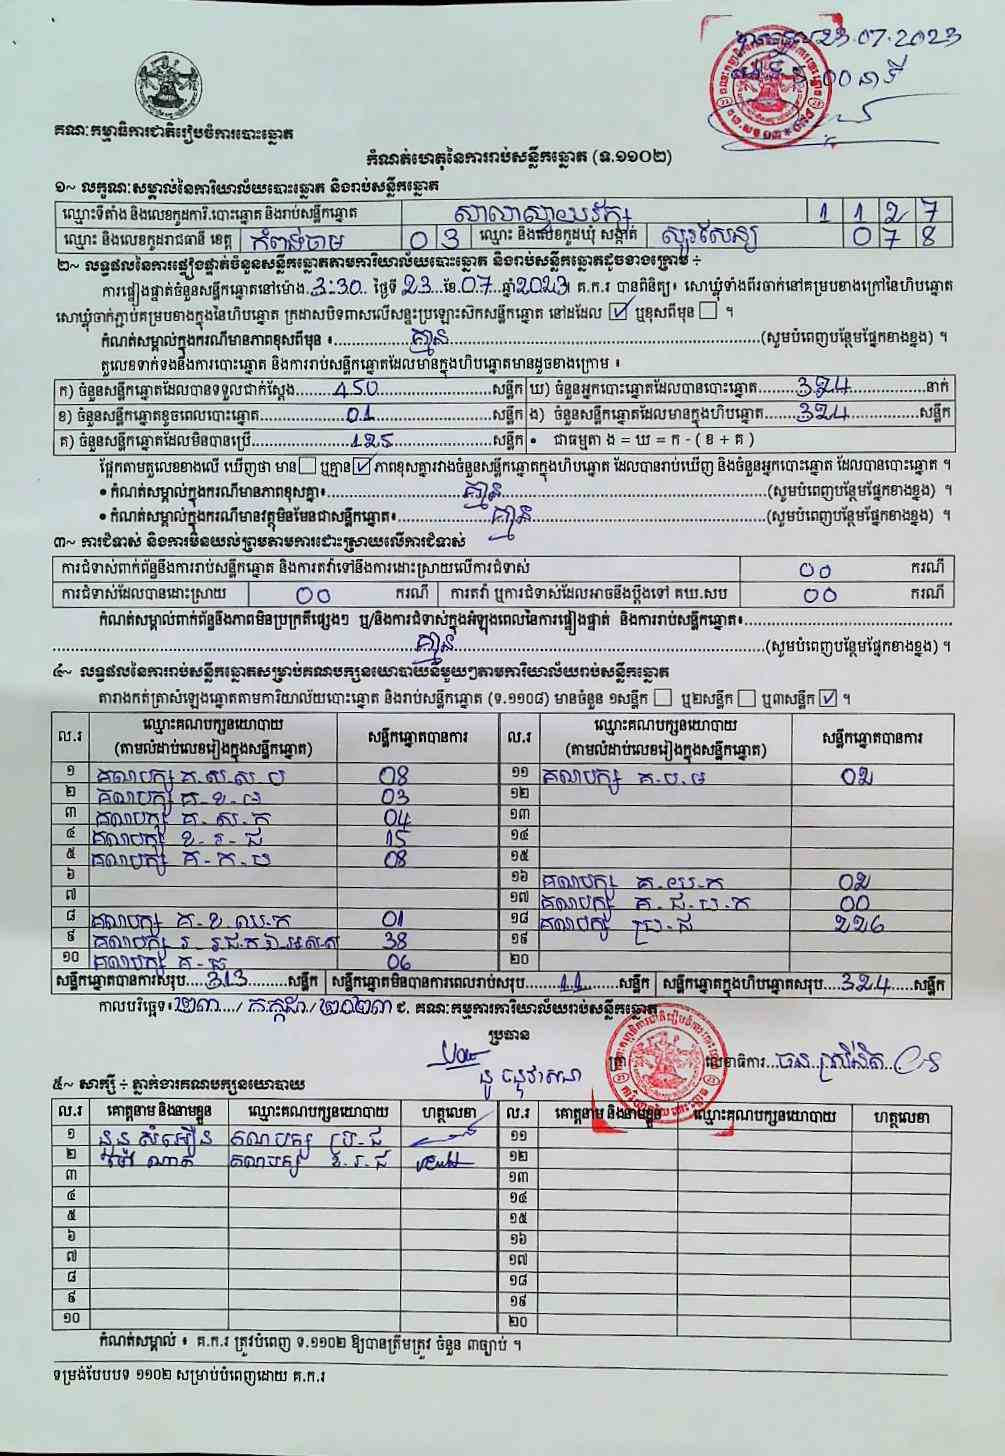 23.07.2023
គណៈកម្មាធិការជាតិរៀបចំការបោះឆ្នោត
កំណត់ហេតុនៃការរាប់សន្លឹកឆ្នោត (ទ.១១០២)
១~ លក្ខណៈសម្គាល់នៃការិយាល័យបោះឆ្នោត និងរាប់សន្លឹកឆ្នោត
ឈ្មោះទីតាំង និងលេខកូដការិ.បោះឆ្នោត និងរាប់សន្លឹកឆ្នោត សាលាស្វាយ 1 1 2 7
ឈ្មោះ និងលេខកូដរាជធានី ខេត្ត កំពង់ចាម 0 3 ឈ្មោះ និងលេខកូដឃុំ សង្កាត់ សួរសែន្យ 0 7 8
២~ លទ្ធផលនៃការផ្ទៀងផ្ទាត់ចំនួនសន្លឹកឆ្នោតតាមការិយាល័យបោះឆ្នោត និងរាប់សន្លឹកឆ្នោតដូចខាងក្រោម ÷
ការផ្ទៀងផ្ទាត់ចំនួនសន្លឹកឆ្នោតនៅម៉ោង 3:30 ថ្ងៃទី 23 ខែ 07 ឆ្នាំ 2023 គ.ក.រ បានពិនិត្យ៖ សោឃ្លុំទាំងពីរចាក់នៅគម្របខាងក្រៅនៃហិបឆ្នោត
សោឃ្លុំចាក់ភ្ជាប់គម្របខាងក្នុងនៃហិបឆ្នោត ក្រដាសបិទពាសលើសន្ទះប្រឡោះស៊កសន្លឹកឆ្នោត នៅដដែល ☑ ឬខុសពីមុន ☐ ។
កំណត់សម្គាល់ក្នុងករណីមានភាពខុសពីមុន ៖ គ្មាន (សូមបំពេញបន្ថែមផ្នែកខាងខ្នង) ។
តួលេខទាក់ទងនឹងការបោះឆ្នោត និងការរាប់សន្លឹកឆ្នោតដែលមានក្នុងហិបឆ្នោតមានដូចខាងក្រោម ៖
ក) ចំនួនសន្លឹកឆ្នោតដែលបានទទួលជាក់ស្តែង 450 សន្លឹក ឃ) ចំនួនអ្នកបោះឆ្នោតដែលបានបោះឆ្នោត 324 នាក់
ខ) ចំនួនសន្លឹកឆ្នោតខូចពេលបោះឆ្នោត 01 សន្លឹក ង) ចំនួនសន្លឹកឆ្នោតដែលមានក្នុងហិបឆ្នោត 324 សន្លឹក
គ) ចំនួនសន្លឹកឆ្នោតដែលមិនបានប្រើ 125 សន្លឹក • ជាធម្មតា ង = ឃ = ក - ( ខ + គ )
ផ្អែកតាមតួលេខខាងលើ ឃើញថា មាន ☐ ឬគ្មាន ☑ ភាពខុសគ្នារវាងចំនួនសន្លឹកឆ្នោតក្នុងហិបឆ្នោត ដែលបានរាប់ឃើញ និងចំនួនអ្នកបោះឆ្នោត ដែលបានបោះឆ្នោត ។
• កំណត់សម្គាល់ក្នុងករណីមានភាពខុសគ្នា៖ គ្មាន (សូមបំពេញបន្ថែមផ្នែកខាងខ្នង) ។
• កំណត់សម្គាល់ក្នុងករណីមានវត្ថុមិនមែនជាសន្លឹកឆ្នោត៖ គ្មាន (សូមបំពេញបន្ថែមផ្នែកខាងខ្នង) ។
៣~ ការជំទាស់ និងការមិនយល់ព្រមតាមការដោះស្រាយលើការជំទាស់
ការជំទាស់ពាក់ព័ន្ធនឹងការរាប់សន្លឹកឆ្នោត និងការតវ៉ាទៅនឹងការដោះស្រាយលើការជំទាស់ 00 ករណី
ការជំទាស់ដែលបានដោះស្រាយ 00 ករណី ការតវ៉ា ឬការជំទាស់ដែលអាចនឹងប្តឹងទៅ គឃ.សប 00 ករណី
កំណត់សម្គាល់ពាក់ព័ន្ធនឹងភាពមិនប្រក្រតីផ្សេងៗ ឬ/និងការជំទាស់ក្នុងអំឡុងពេលនៃការផ្ទៀងផ្ទាត់ និងការរាប់សន្លឹកឆ្នោត៖
គ្មាន (សូមបំពេញបន្ថែមផ្នែកខាងខ្នង) ។
៤~ លទ្ធផលនៃការរាប់សន្លឹកឆ្នោតសម្រាប់គណបក្សនយោបាយនីមួយៗតាមការិយាល័យរាប់សន្លឹកឆ្នោត
តារាងកត់ត្រាសំឡេងឆ្នោតតាមការិយាល័យបោះឆ្នោត និងរាប់សន្លឹកឆ្នោត (ទ.១១០៨) មានចំនួន ១សន្លឹក ☐ ឬ២សន្លឹក ☐ ឬ៣សន្លឹក ☑ ។
ល.រ ឈ្មោះគណបក្សនយោបាយ (តាមលំដាប់លេខរៀងក្នុងសន្លឹកឆ្នោត) សន្លឹកឆ្នោតបានការ ល.រ ឈ្មោះគណបក្សនយោបាយ (តាមលំដាប់លេខរៀងក្នុងសន្លឹកឆ្នោត) សន្លឹកឆ្នោតបានការ
១ គណបក្ស គ.ស.ស.ប 08 ១១ គណបក្ស គ.ប.ម 02
២ គណបក្ស គ.ខ.ផ 03 ១២
៣ គណបក្ស គ.ស.ក 04 ១៣
៤ គណបក្ស ខ.រ.ជ 15 ១៤
៥ គណបក្ស គ.ក.ប 08 ១៥
៦ ១៦ គណបក្ស គ.យ.ក 02
៧ ១៧ គណបក្ស គ.ជ.ប.ក 00
៨ គណបក្ស គ.ខ.ឈ.ក 01 ១៨ គណបក្ស ប្រ.ជ 226
៩ គណបក្ស 38 ១៩
១០ គណបក្ស គ.ធ 06 ២០
សន្លឹកឆ្នោតបានការសរុប 313 សន្លឹក សន្លឹកឆ្នោតមិនបានការពេលរាប់សរុប 11 សន្លឹក សន្លឹកឆ្នោតក្នុងហិបឆ្នោតសរុប 324 សន្លឹក
កាលបរិច្ឆេទ៖ ២៣ / កក្កដា / ២០២៣ ជ. គណៈកម្មការការិយាល័យរាប់សន្លឹកឆ្នោត
ប្រធាន
លេខាធិការ
៥~ សាក្សី ÷ ភ្នាក់ងារគណបក្សនយោបាយ
ល.រ គោត្តនាម និងនាមខ្លួន ឈ្មោះគណបក្សនយោបាយ ហត្ថលេខា ល.រ គោត្តនាម និងនាមខ្លួន ឈ្មោះគណបក្សនយោបាយ ហត្ថលេខា
១ នួន សំអឿន គណបក្ស ប្រ.ជ ១១
២ ណាត គណបក្ស ខ.រ.ជ ១២
៣ ១៣
៤ ១៤
៥ ១៥
៦ ១៦
៧ ១៧
៨ ១៨
៩ ១៩
១០ ២០
កំណត់សម្គាល់ ៖ គ.ក.រ ត្រូវបំពេញ ទ.១១០២ ឱ្យបានត្រឹមត្រូវ ចំនួន ៣ច្បាប់ ។
ទម្រង់បែបបទ ១១០២ សម្រាប់បំពេញដោយ គ.ក.រ